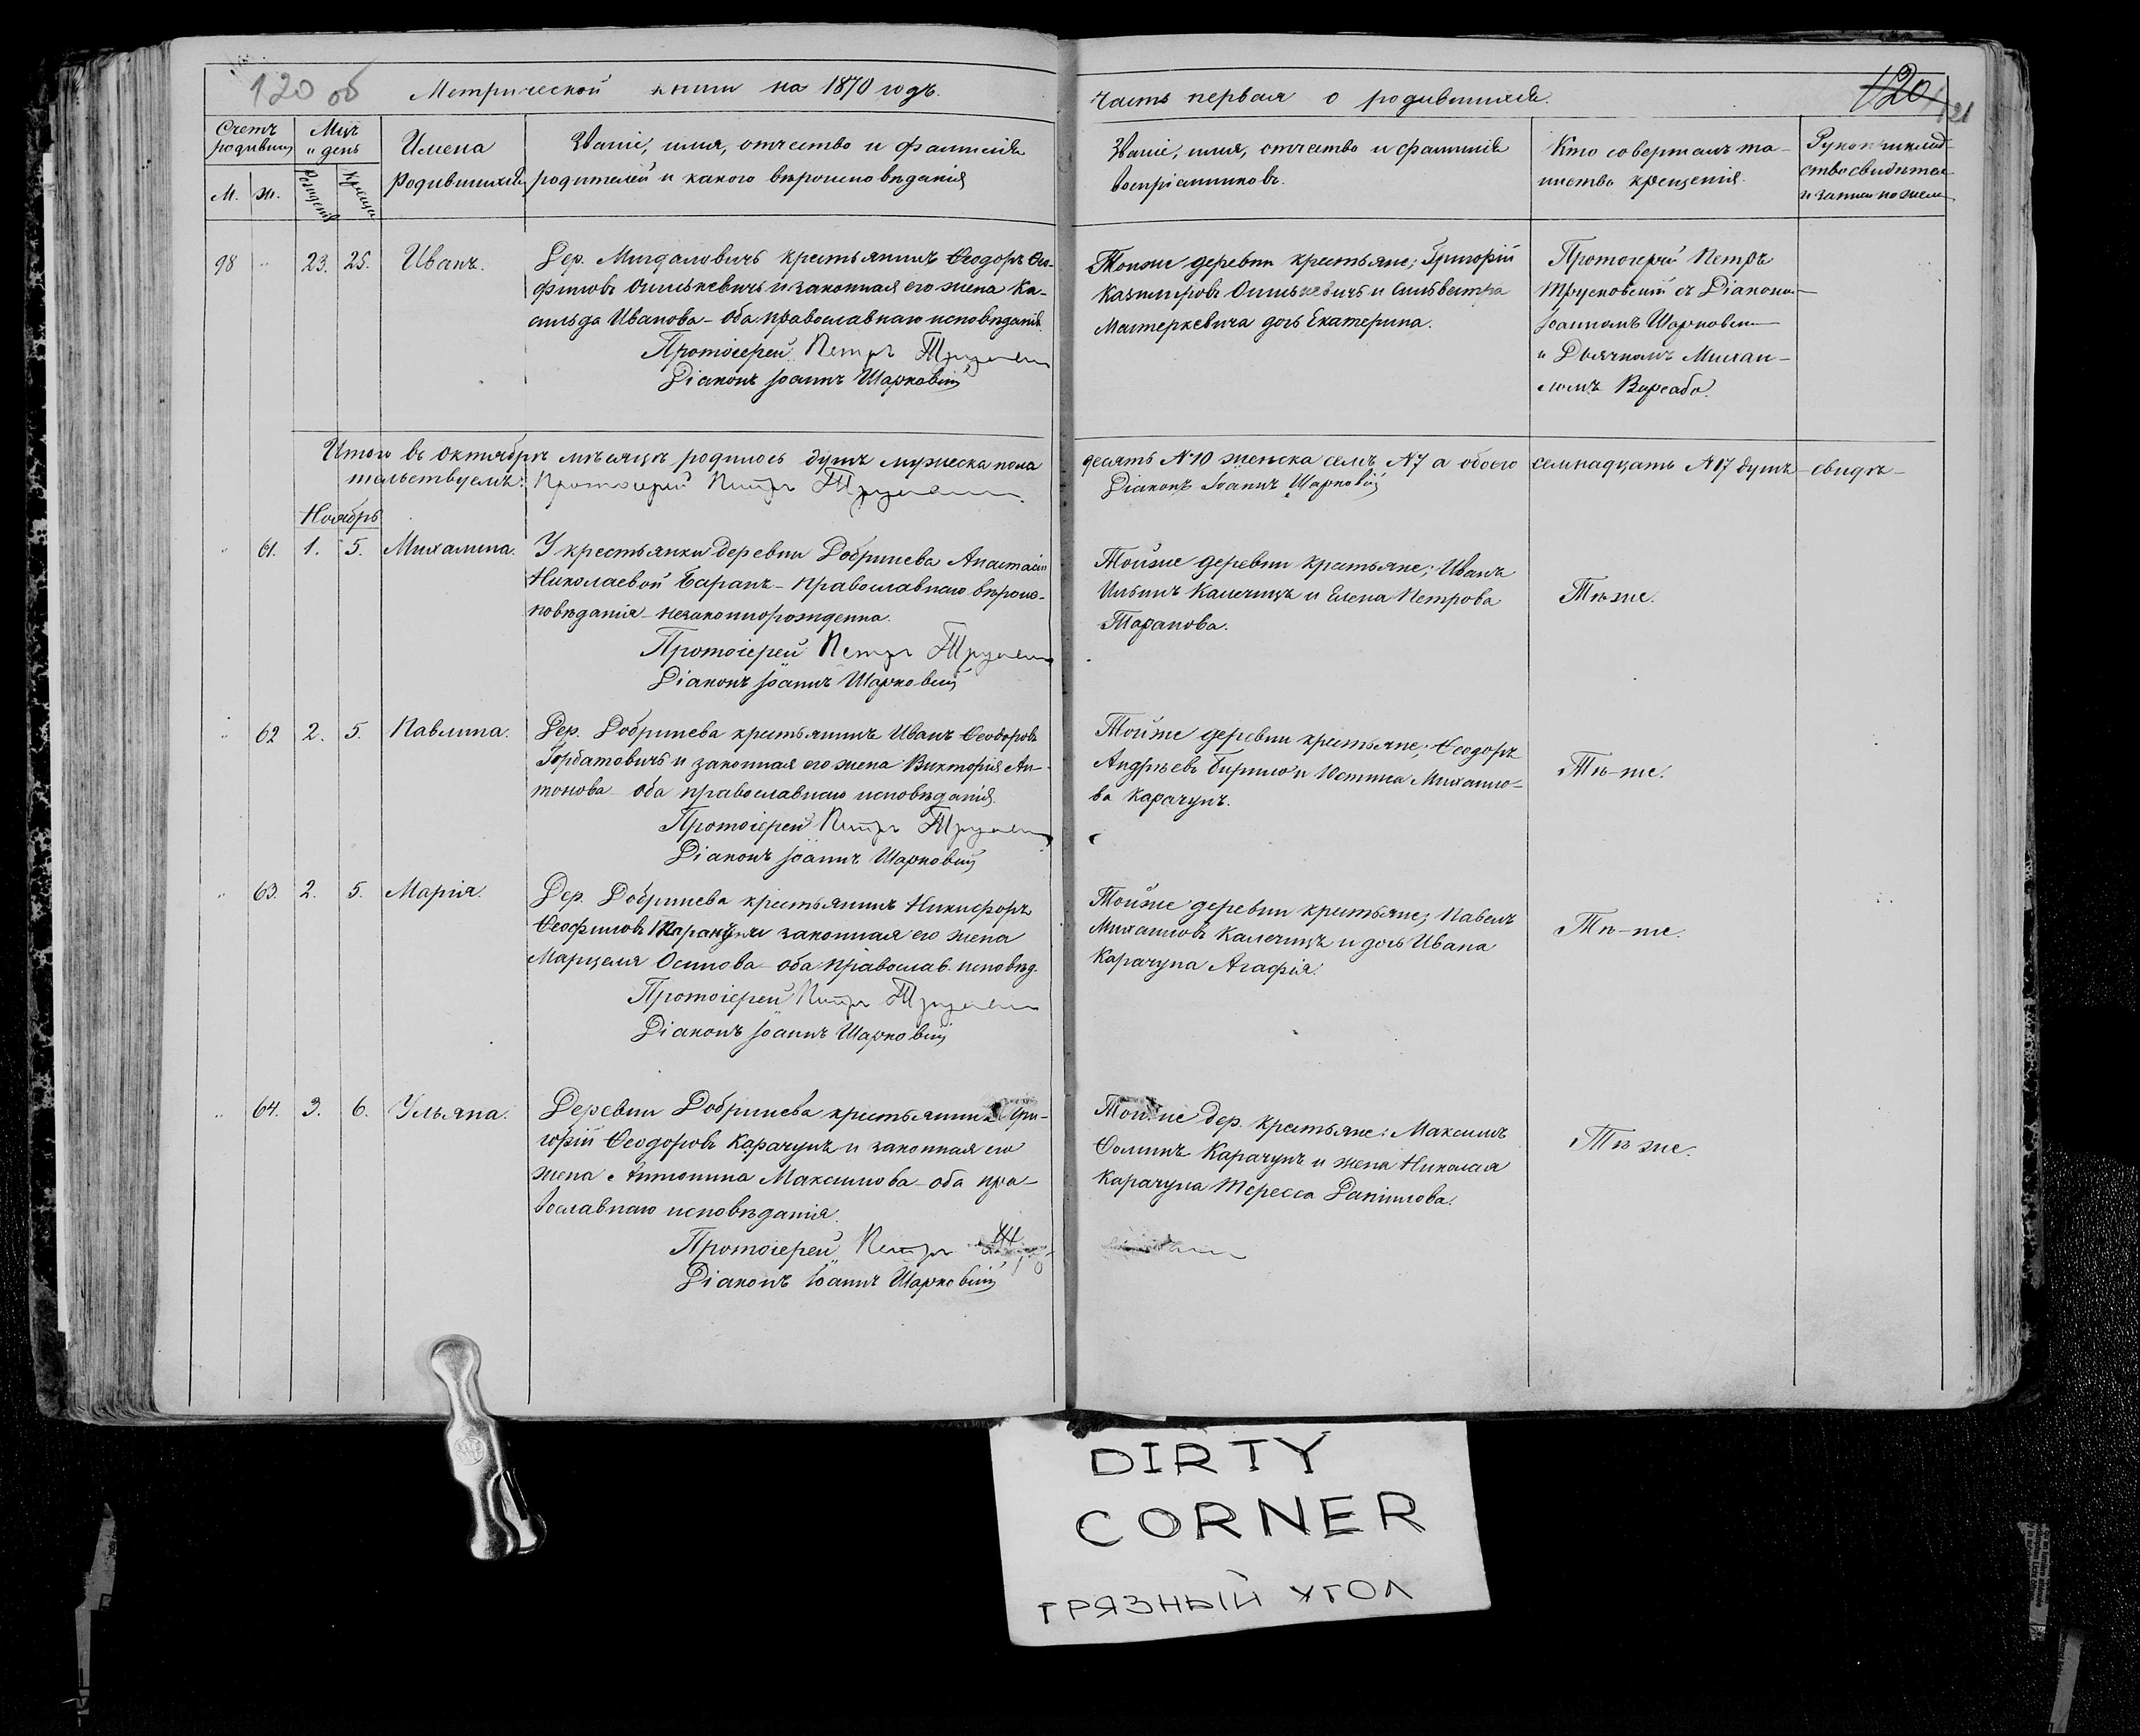 120 об
Метрической книги на 1870 годъ.
часть первая о родившихся.
120
121
Счетъ родивших
Мцъ и день
Имена Родившихся
Званіе, имя, отчество и фамилія
родителей и какого вѣроисповѣданія
Званіе, имя, отчество и фамилія
воспріемниковъ.
Кто совершалъ та-
инство крещенія.
Рукоприклад-
ство свидѣтел
и записи по жела
М. Ж.
Рожденія
Крещен
98 " 23. 25. Иванъ.
Дер. Мигдаловичъ крестьянинъ Ѳеодоръ Ѳео-
филовъ и законная его жена Ка-
сильда Иванова - оба православнаго исповѣданія.
Протоіерей Петръ
Діаконъ Іоаннъ Шарковскій
Тойже деревни крестьяне; Григорій
Казимировъ и Сильвестра
Мастеркевича дочь Екатерина.
Протоіерей Петръ
Трусковскій съ Діакономъ
Іоанномъ Шарковскимъ
и Дьячкомъ Михаи-
ломъ
Итого въ Октябрѣ мѣсяцѣ родилось душъ мужеска пола десять №10 женска семь №7 а обоего семнадцать №17 душъ - свидѣ-
тельствуемъ: Протоіерей Петръ
Діаконъ Іоаннъ Шарковскій
Ноябрь
" 61. 1. 5. Михалина.
У крестьянки деревни Добринева Анастасіи
Николаевой Баранъ - православнаго вѣроис-
повѣданія - незаконнорожденна.
Протоіерей Петръ
Діаконъ Іоаннъ Шарковскій
Тойже деревни крестьяне; Иванъ
Ильинъ Калечицъ и Елена Петрова
Таранова.
Тѣже.
" 62 2. 5. Павлина.
Дер. Добринева крестьянинъ Иванъ Ѳеодоровъ
Горбатовичъ и законная его жена Викторія Ан-
тонова - оба православнаго исповѣданія.
Протоіерей Петръ
Діаконъ Іоаннъ Шарковскій
Тойже деревни крестьяне; Ѳеодоръ
Андреевъ Бирило и Юстина Михайло-
ва Карачунъ.
Тѣ-же.
" 63. 2. 5. Марія.
Дер. Добринева крестьянинъ Никифоръ
Ѳеофиловъ и законная его жена
Марцеля Осипова - оба православ. исповѣд.
Протоіерей Петръ
Діаконъ Іоаннъ Шарковскій
Тойже деревни крестьяне; Павелъ
Михайловъ Калечицъ и дочь Ивана
Карачуна Агафія.
Тѣ-же.
" 64. 3. 6. Ульяна.
Деревни Добринева крестьянинъ Гри-
горій Ѳеодоровъ Карачунъ и законная его
жена Антонина Максимова - оба пра-
вославнаго исповѣданія.
Протоіерей Петръ
Діаконъ Іоаннъ Шарковскій
Тойже дер. крестьяне: Максимъ
Ѳоминъ Карачунъ и жена Николая
Карачуна Тересса Даніилова.
Тѣже.
DIRTY
CORNER
ГРЯЗНЫЙ УГОЛ